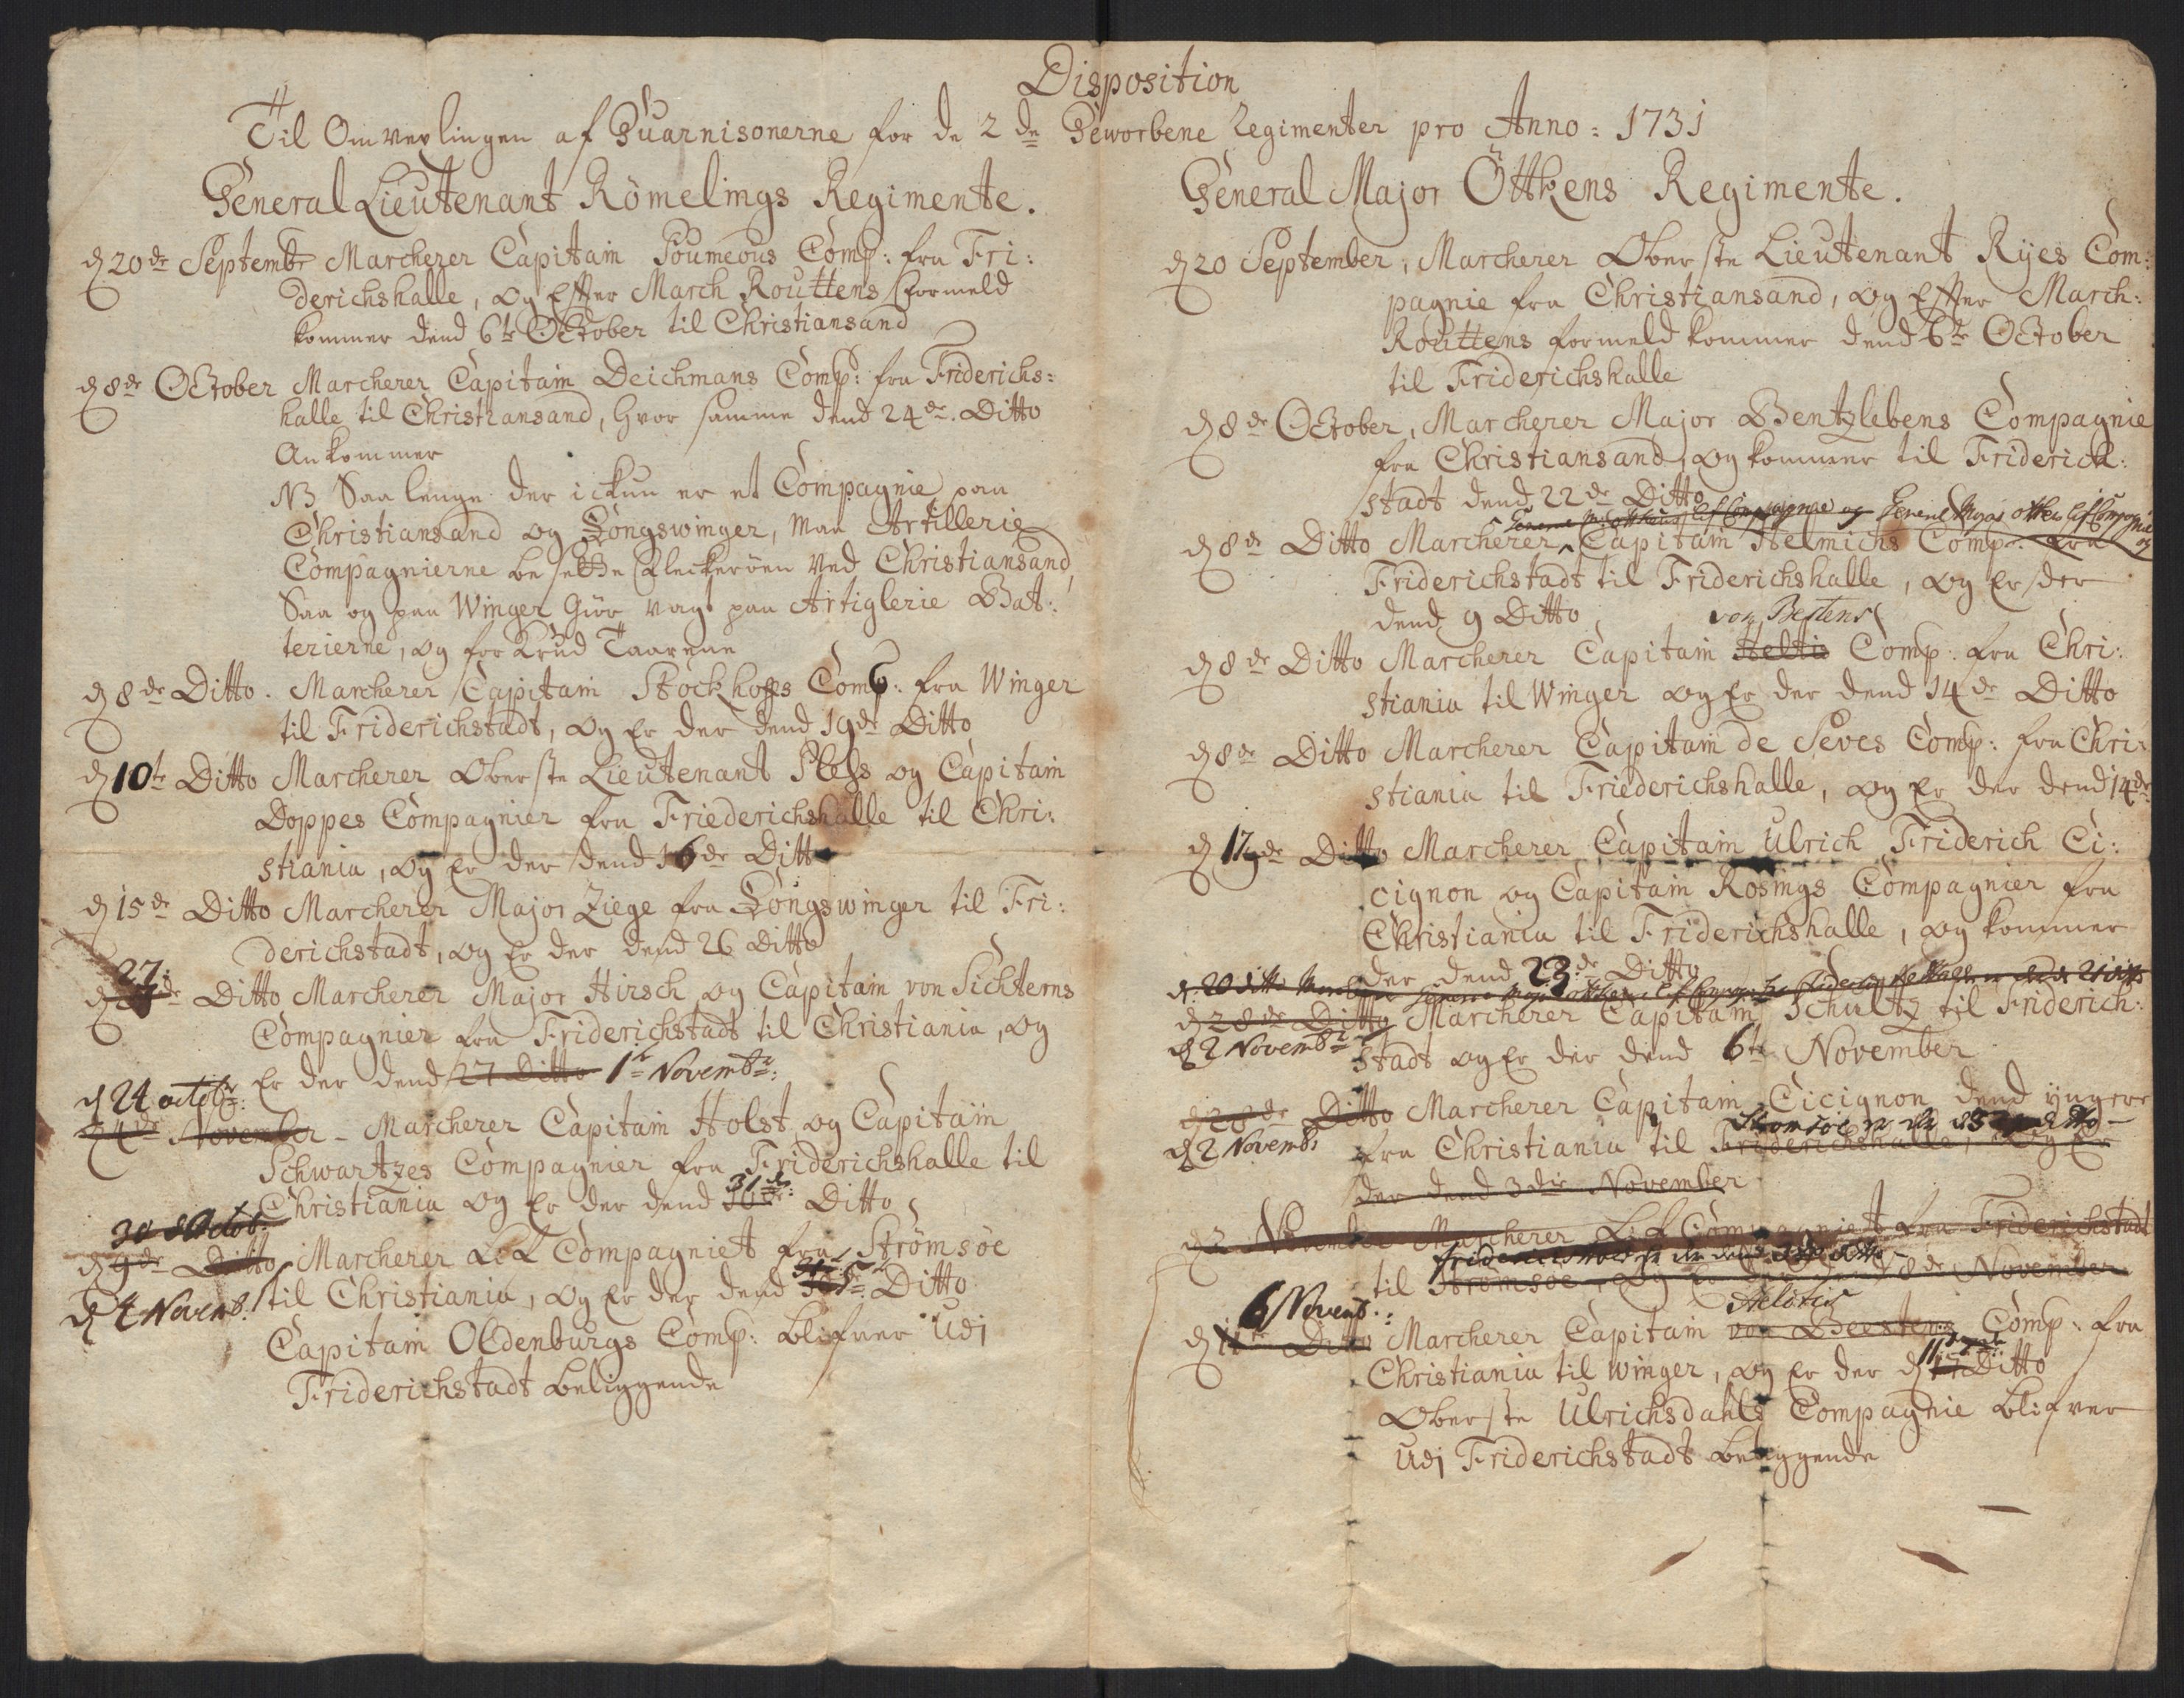 Disposition
Til Omvexlingen af Guarnisonerne for de 2de Geworbene Regimenter pro Anno: 1731
General Lieutenant Römelings Regimente.
d 20de Septembr Marcherer Capitain Poumeous Comp: fra Fri:
derichshalle, og Efter March Routtens Formeld
kommer dend 6te October til Christiansand
d 8de October Marcherer Capitain Deichmans Comp: fra Friderichs:
halle til Christiansand, hvor samme dend 24de Ditto
Ankommer
NB Saa lenge der ickun er et Compagnie paa
Christiansand og Kongswinger, maa Artillerie
Compagnierne besette Fleckerøen ved Christiansand,
Saa og paa Winger giør vagt paa Artiglerie Bat:
terierne, og for Krud Taarnene
d 8de Ditto. Marcherer Capitain Stockhoffs Comp: fra Winger
til Friderichstadt, og Er der dend 19de Ditto
d 10te Ditto Marcherer Oberste Lieutenant Pless og Capitain
Doppes Compagnier fra Friederichshalle til Chri:
stiania, og Er der dend 16de Ditto
d 15de Ditto Marcherer Major Ziege fra Kongswinger til Fri:
derichstadt, og Er der dend 26 Ditto
27:
de Ditto Marcherer Major Hirsch og Capitain von Sichterns
Compagnier fra Friderichstadt til Christiania, og
Er der dend 27 Ditto 1te Novembr:
d 24 octobr:
d 4de November - Marcherer Capitain Holst og Capitain
Schwartzes Compagnier fra Friderichshalle til
Christiania og Er der dend 31de Ditto
30 October
d 9de Ditto Marcherer Lif Compagniet fra Strømsøe
d 4 Novemb. til Christiania, og Er der dend 5te Ditto
Capitain Oldenburgs Comp: blifver Udj
Friderichstadt beliggende
General Major Öttkens Regimente.
d 20 September, Marcherer Oberste Lieutenant Ryes Com:
pagnie fra Christiansand, og Efter March:
Routtens formeld kommer dend 6te October
til Friderichshalle
d 8de October, Marcherer Major Bentzlebens Compagnie
fra Christiansand, og kommer til Friderich:
stadt dend 22de Ditto
Lif Compagnie og General Major ottkens lif Compagnie og
d 8de Ditto Marcherer Capitain Helmichs Comp: fra
Friderichstadt til Friderichshalle, og Er der
dend 9 Ditto
von Bestens
d 8de Ditto Marcherer Capitain Heltis Comp: fra Chri:
stiania til Winger og Er der dend 14de Ditto
d 8de Ditto Marcherer Capitain de Seves Comp: fra Chri:
stiania til Friederichshalle, og Er der dend 14de
d 17de Ditto Marcherer Capitain Ulrich Friderich Ci:
cignon og Capitain Rosings Compagnier fra
Christiania til Friderichshalle, og kommer
der dend 23de Ditto
d. 20 ditto General Major ottkens Lif Comp: 21 ditto
d 28de Ditto Marcherer Capitain Schultz til Friderich:
d 2 Novembr stadt og Er der dend 6te November
d 28de Ditto Marcherer Capitain Cicignon dend yngere
Strømsøe
d 2 Novembr fra Christiania til Friderichshalle, og Er
der dend 3die November
d 2 November Marcherer Lif Compagniet fra Friderichstadt
til Strømsøe, og Er der dend 8de November
6 Novemb:
Heltis
d 11te Ditto Marcherer Capitain von Beestens Comp: fra
Christiania til Winger, og Er der d 11te Ditto
Oberste Ulrichsdahls Compagnie blifver
Udj Friderichstadt beliggende